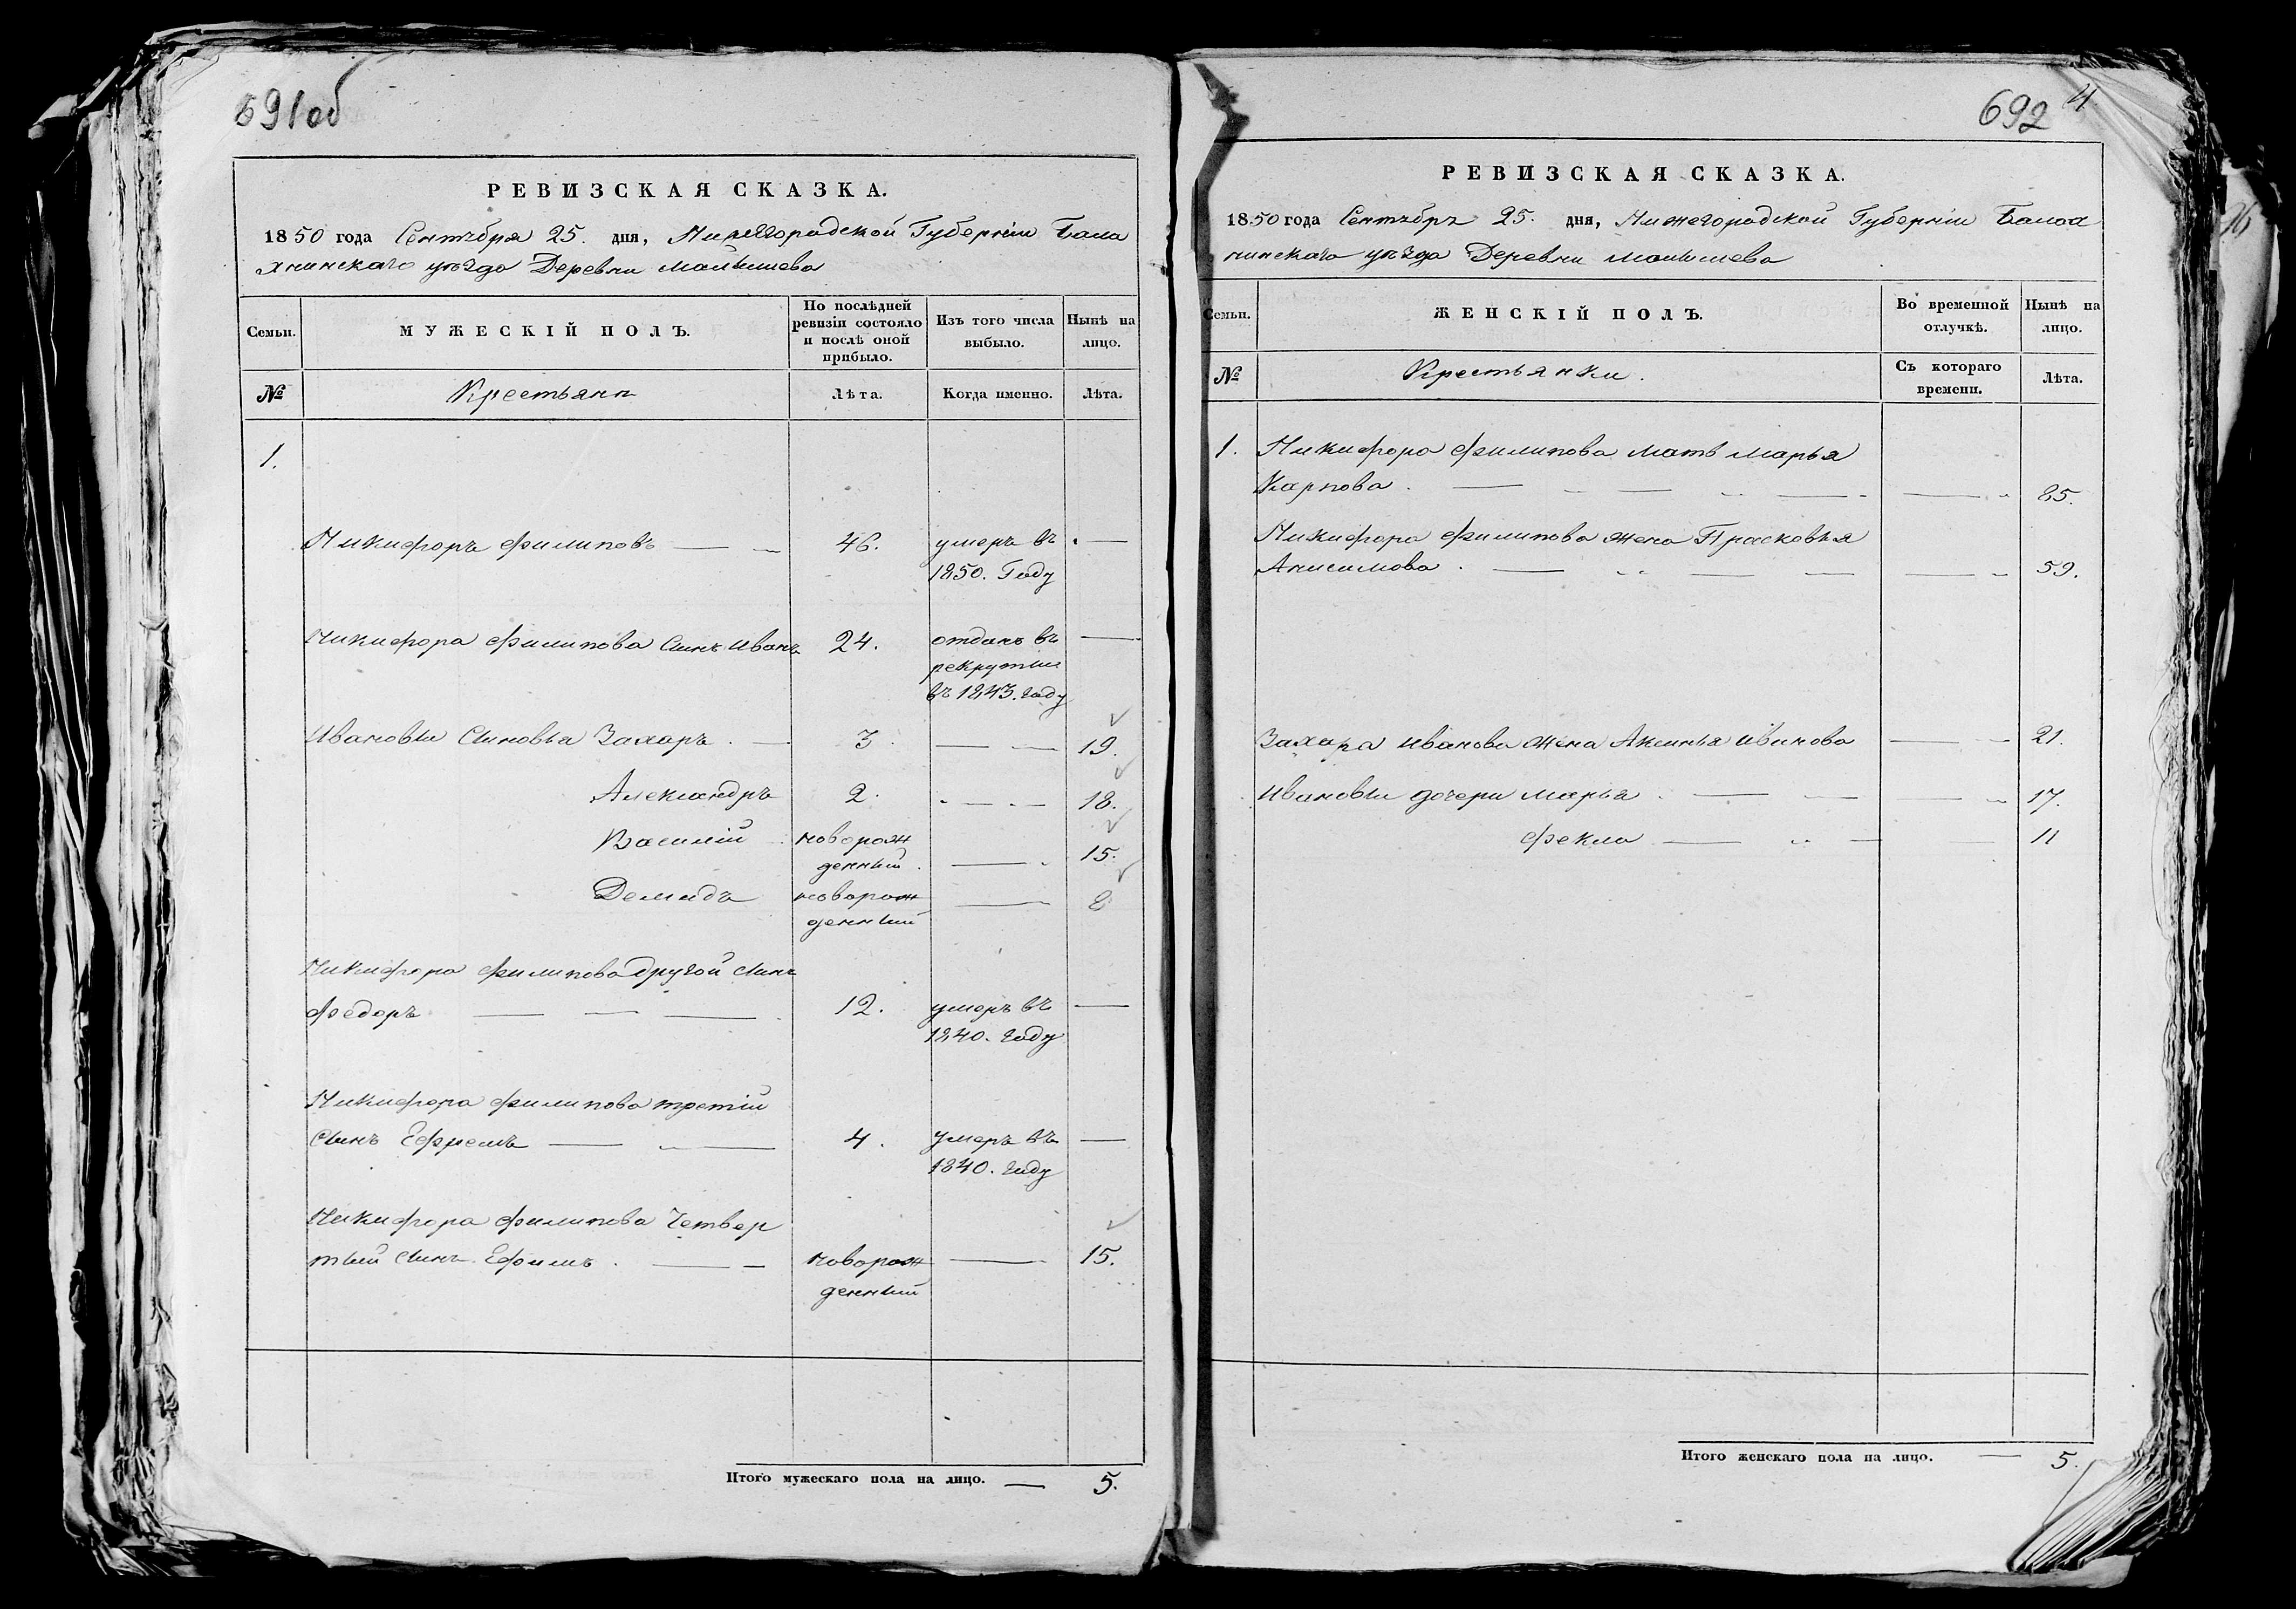 691об
РЕВИЗСКАЯ СКАЗКА.
1850 года Сентября 25. дня, Нижегородской Губерніи Бала
хнинскаго уѣзда Деревни Малышева
Семьи. МУЖЕСКІЙ ПОЛЪ. По послѣдней ревизіи состояло и послѣ оной прибыло. Изъ того числа выбыло. Нынѣ на лицо.
№ Крестьянъ Лѣта. Когда именно. Лѣта.
1.
Никифоръ Филиповъ 46. умеръ въ
1850. Году
Никифора Филипова Сынъ Иванъ 24. отданъ въ
рекруты
въ 1843. году
Ивановы Сыновья Захаръ 3. 19.
Александръ 2. 18.
Василій новорож
денный 15.
Демидъ новорож 8
денный
Никифора Филипова другой Сынъ
Федоръ 12. умеръ въ
1840. году
Никифора Филипова третій
Сынъ Ефремъ 4. умеръ въ
1840. году
Никифора Филипова Четвер
тый Сынъ Ефимъ новорож 15.
денный
Итого мужескаго пола на лицо. — 5.
692 4
РЕВИЗСКАЯ СКАЗКА.
1850 года Сентября 25. дня, Нижегородской Губерніи Балах
нинскаго уѣзда Деревни Малышева
Семьи. ЖЕНСКІЙ ПОЛЪ. Во временной отлучкѣ. Нынѣ на лицо.
№ Крестьянки. Съ котораго времени. Лѣта.
1. Никифора Филипова мать Марья
Карпова 85.
Никифора Филипова жена Прасковья
Анисимова 59.
Захара Иванова жена Аксинья Иванова 21.
Ивановы дочери Марья 17.
Фекла 11
Итого женскаго пола на лицо. — 5.